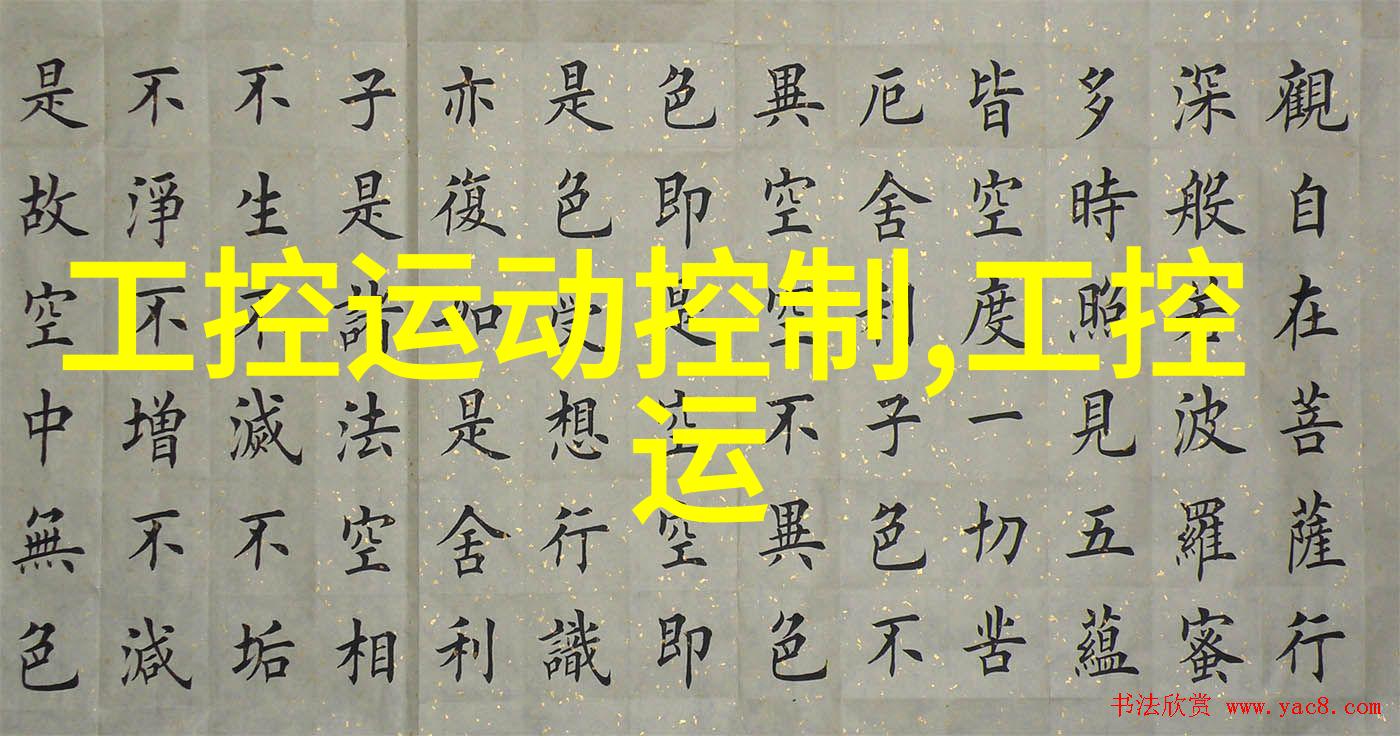 觀自在菩薩行
深般若波羅蜜
多時照見五蘊
皆空度一切苦
厄舍利子色不
異空空不異色
色即是空空即
是色受想行識
亦復如是舍利
子是諸法空相
不生不滅不垢
不淨不增不減
是故空中無色
工控运动控制,工控
运
书法欣赏 www.yac8.com